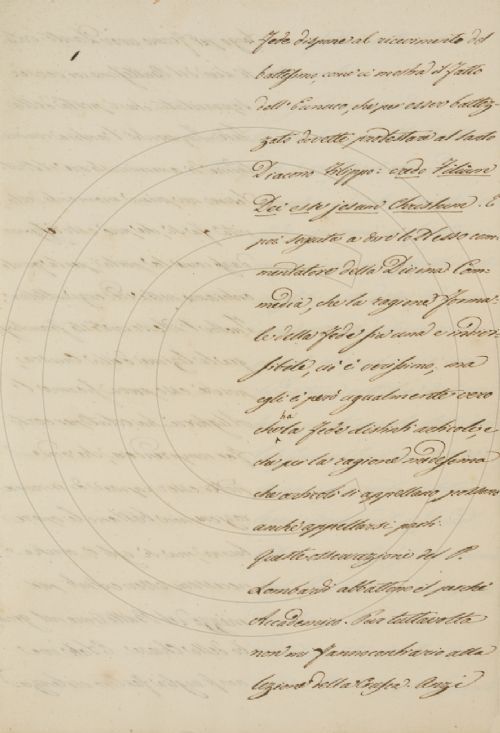 Fede dispone al ricevimento del
battesimo, come ci mostra il fatto
dell' Eunuco, che per esser battez-
zato dovette protestare al santo
Diacono Filippo: credo Filium
Dei esse jesum Christum. E
poi seguita a dire lo stesso com-
mentatore della Divina Com-
media, che la ragione forma-
le della fede sia una e indivi-
sibile, ciò è verissimo, ma
egli è però egualmente vero
che ha la fede distinti articoli, e
che per la ragione medesima
che articoli si appellano, possono
anche appellarsi parti.
Queste osservazioni del P.
Lombardi abbattono il perché
Accademico. Pur tuttavolta
non mi fanno contrario alla
lezione della Crusca. Anzi